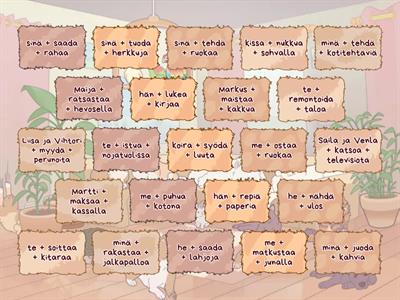 sinä + saada
+ rahaa
sinä + tuoda
+ herkkuja
sinä + tehdä
+ ruokaa
kissa + nukkua
+ sohvalla
minä + tehdä
+ kotitehtäviä
Maija +
ratsastaa
+ hevosella
hän + lukea
+ kirjaa
Markus +
maistaa
+ kakkua
te +
remontoida
+ taloa
Liisa ja Vihtori
+ myydä +
perunoita
te + istua +
nojatuolissa
koira + syödä
+ luuta
me + ostaa
+ ruokaa
Saila ja Venla
+ katsoa +
televisiota
Martti +
maksaa +
kassalla
me + puhua
+ kotona
hän + repiä
+ paperia
he + nähdä
+ ulos
te + soittaa
+ kitaraa
minä +
rakastaa +
jalkapalloa
he + saada
+ lahjoja
me +
matkustaa
+ junalla
minä + juoda
+ kahvia